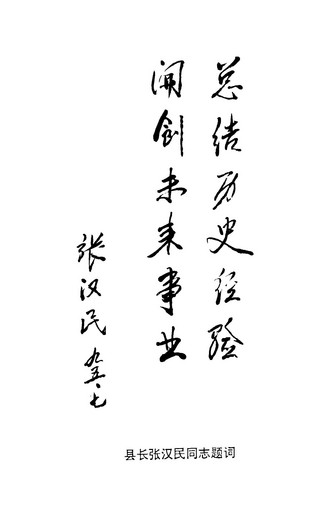 总结历史经验
开创未来事业
张汉民
九五、七
县长张汉民同志题词